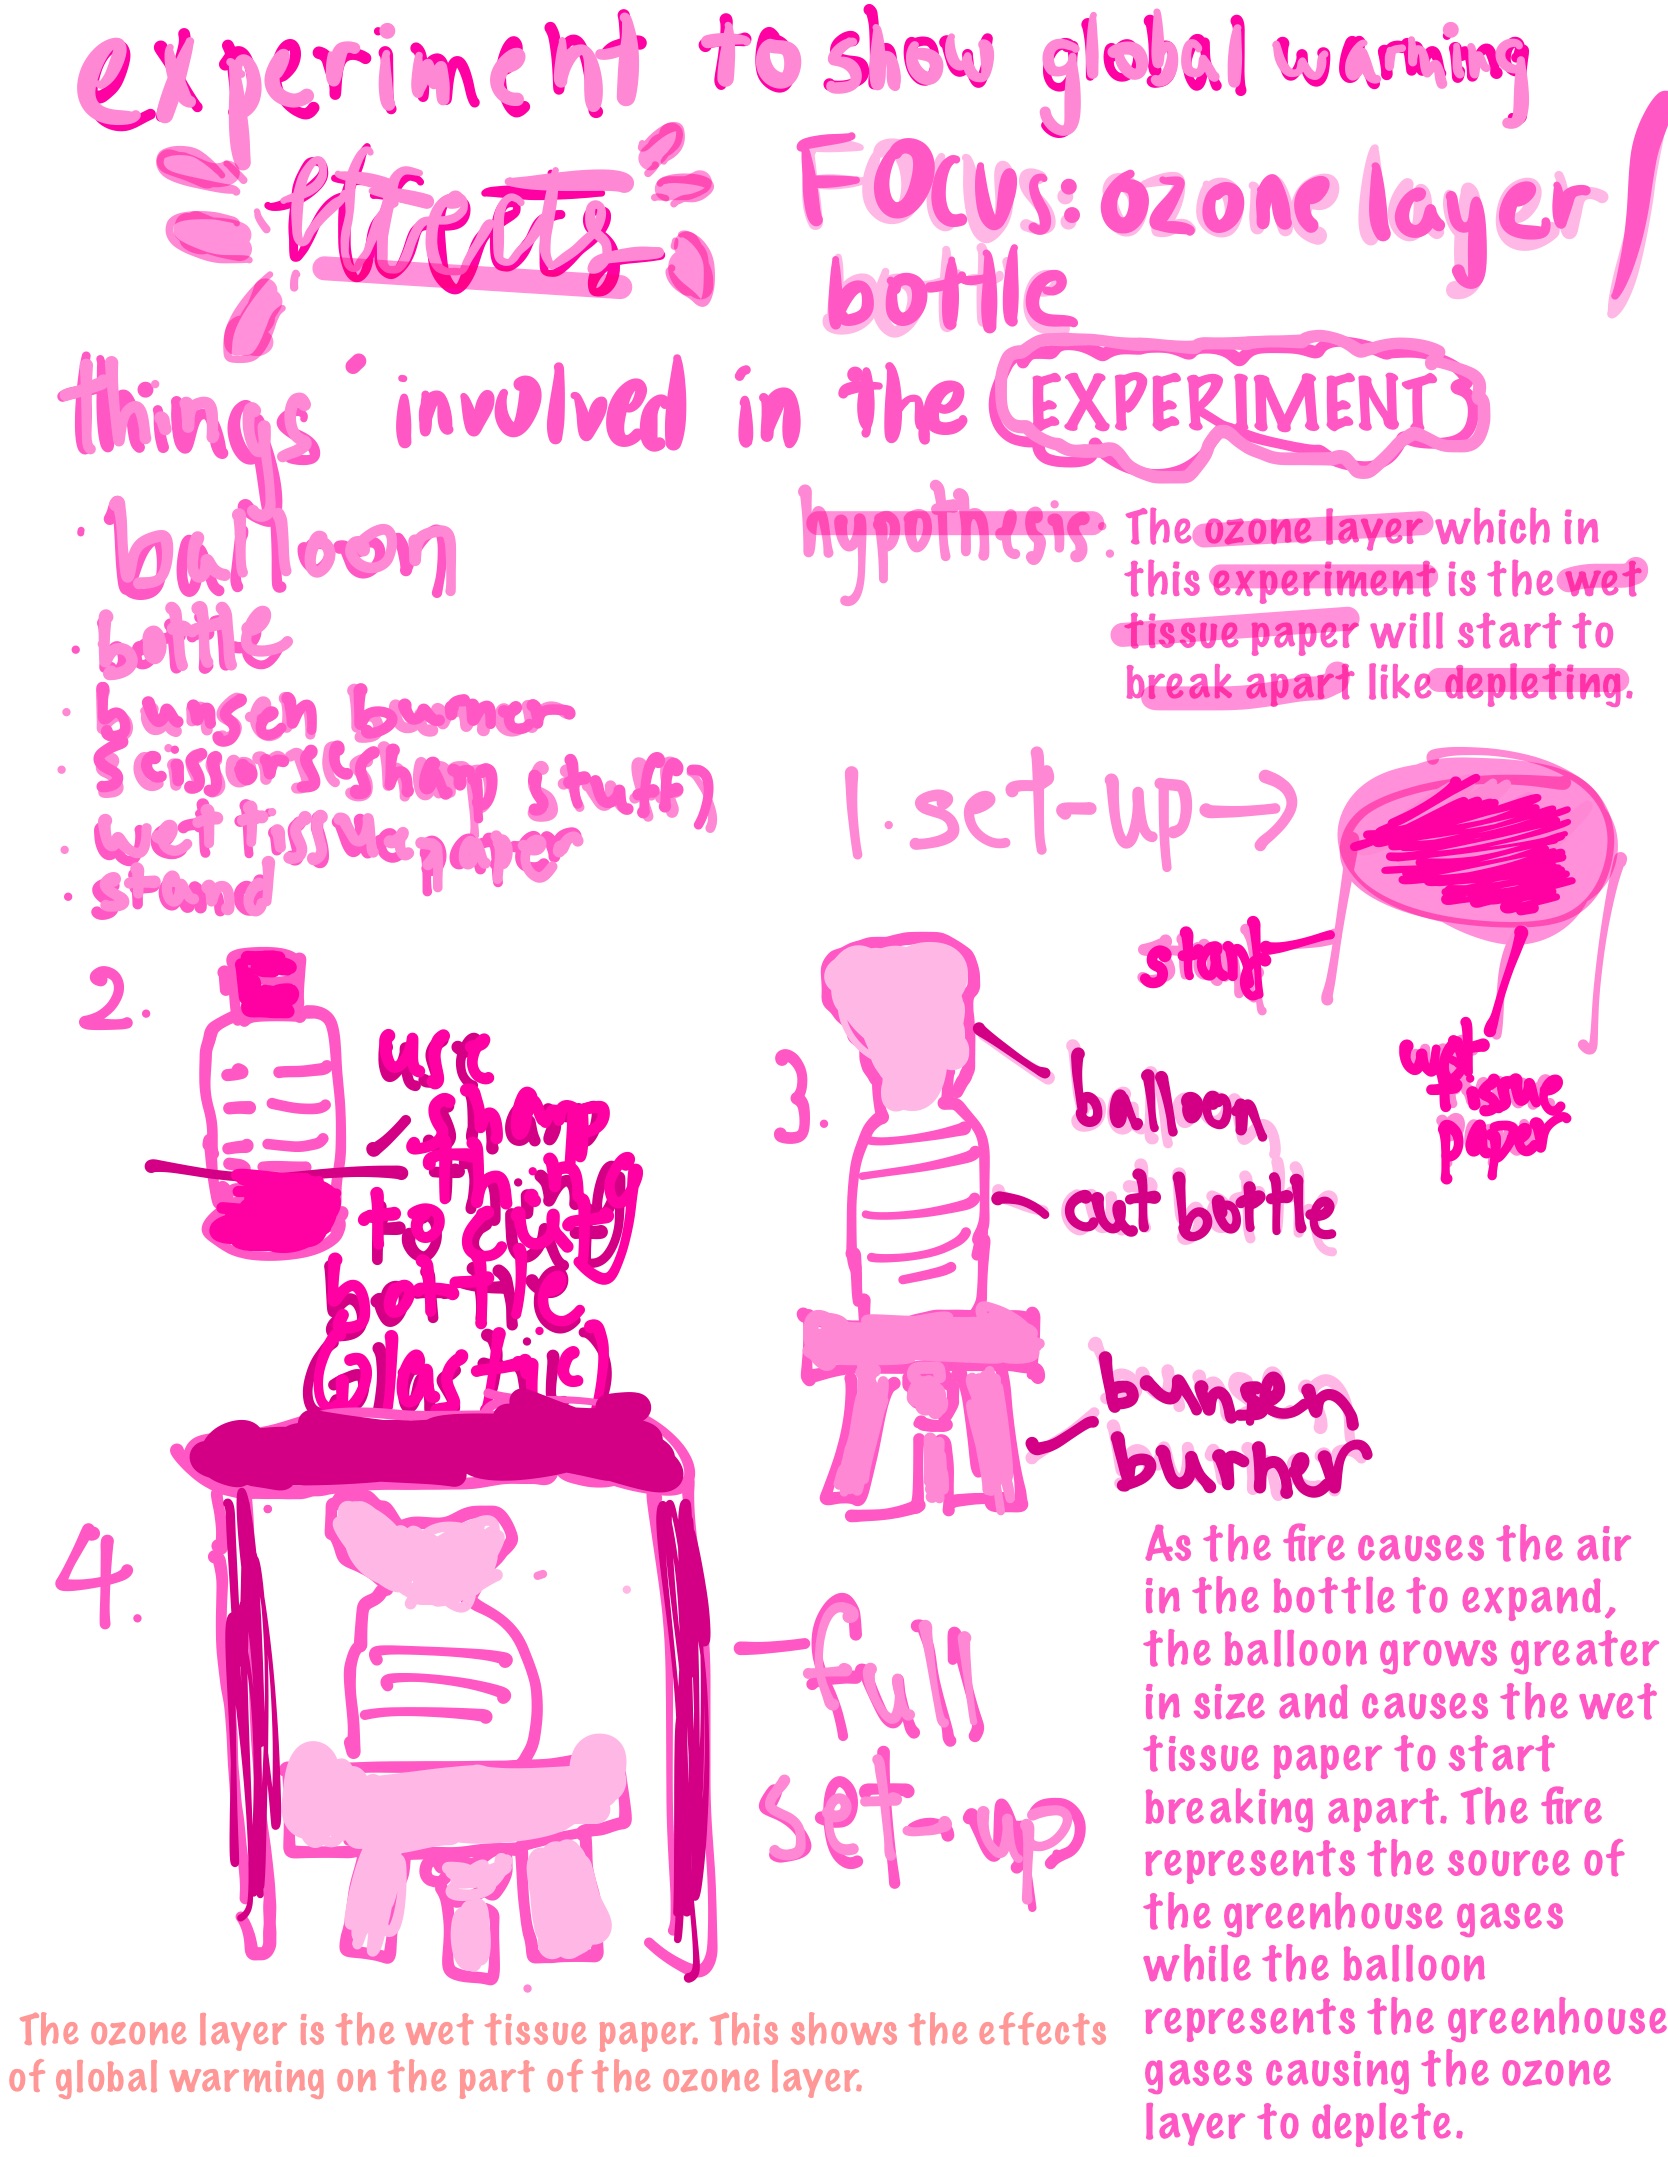 experiment to show global warming
effects
Focus: ozone layer/
bottle
things involved in the EXPERIMENT
· balloon
· bottle
· bunsen burner
· scissors (sharp stuff)
· wet tissue paper
· stand
hypothesis: The ozone layer which in
this experiment is the wet
tissue paper will start to
break apart like depleting.
1. set-up →
stand
wet
tissue
paper
2.
use
sharp
thing
to cut
bottle
(plastic)
3.
balloon
cut bottle
bunsen
burner
4.
full
set-up
As the fire causes the air
in the bottle to expand,
the balloon grows greater
in size and causes the wet
tissue paper to start
breaking apart. The fire
represents the source of
the greenhouse gases
while the balloon
represents the greenhouse
gases causing the ozone
layer to deplete.
The ozone layer is the wet tissue paper. This shows the effects
of global warming on the part of the ozone layer.